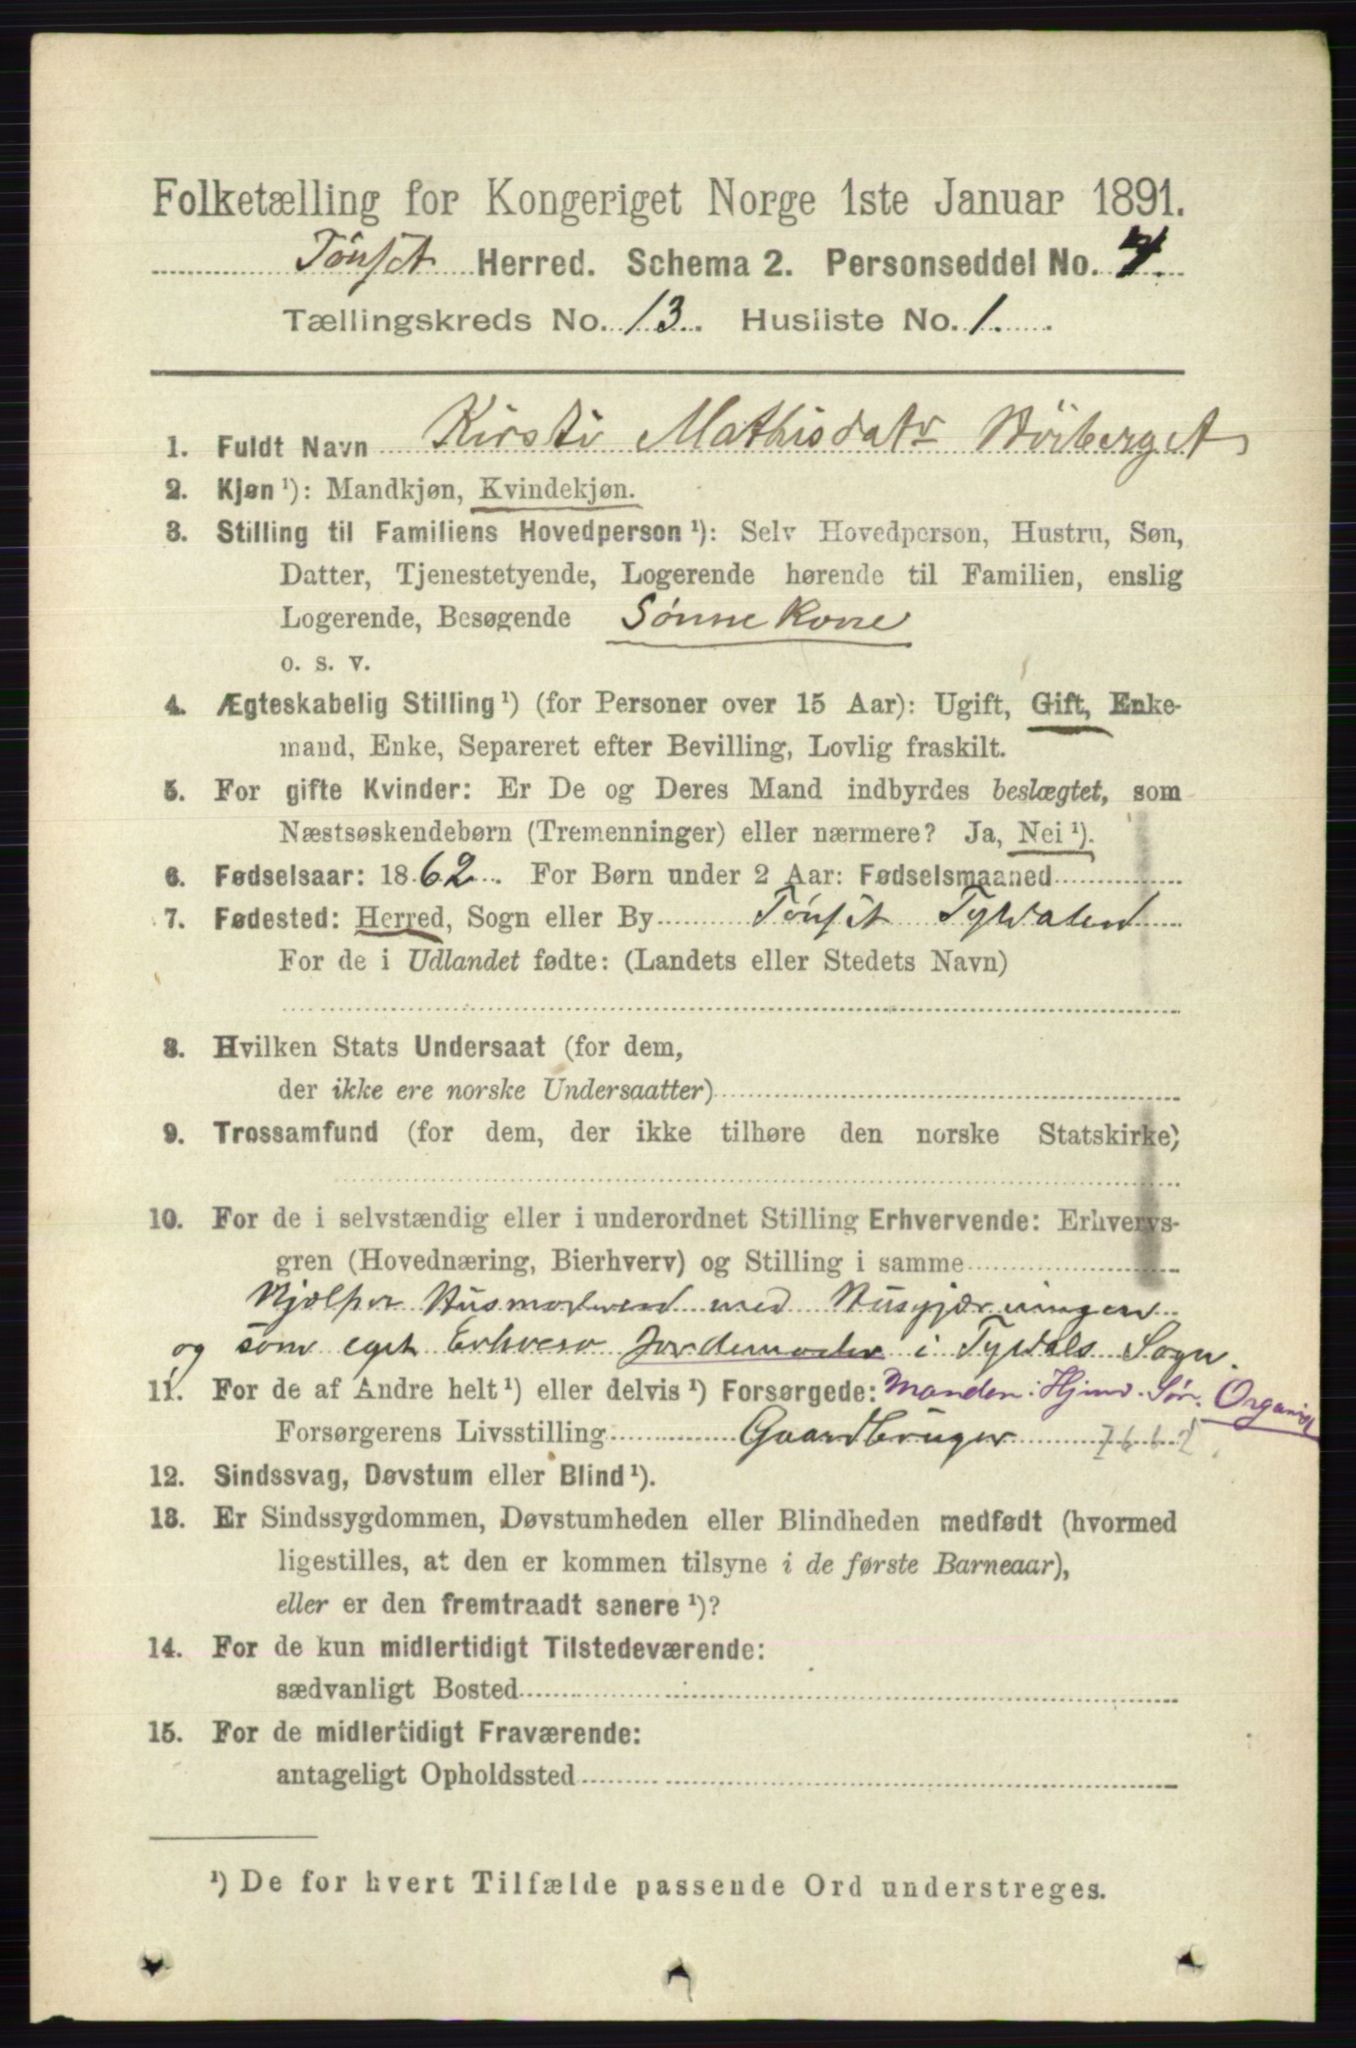 Folketælling for Kongeriget Norge 1ste Januar 1891.
Tønset Herred. Schema 2. Personseddel No. 4.
Tællingskreds No. 13. Husliste No. 1.
1. Fuldt Navn Kirsti Mathisdatr
2. Kjøn ¹): Mandkjøn, Kvindekjøn.
3. Stilling til Familiens Hovedperson ¹): Selv Hovedperson, Hustru, Søn,
Datter, Tjenestetyende, Logerende hørende til Familien, enslig
Logerende, Besøgende Sønnekone
o. s. v.
4. Ægteskabelig Stilling ¹) (for Personer over 15 Aar): Ugift, Gift, Enke-
mand, Enke, Separeret efter Bevilling, Lovlig fraskilt.
5. For gifte Kvinder: Er De og Deres Mand indbyrdes beslægtet, som
Næstsøskendebørn (Tremenninger) eller nærmere? Ja, Nei ¹).
6. Fødselsaar: 1862. For Børn under 2 Aar: Fødselsmaaned
7. Fødested: Herred, Sogn eller By Tønset Tyldalen
For de i Udlandet fødte: (Landets eller Stedets Navn)
8. Hvilken Stats Undersaat (for dem,
der ikke ere norske Undersaatter)
9. Trossamfund (for dem, der ikke tilhøre den norske Statskirke)
10. For de i selvstændig eller i underordnet Stilling Erhvervende: Erhvervs-
gren (Hovednæring, Bierhverv) og Stilling i samme
Hjælper Husmoderen med Husgjærningen
og som eget Erhverv Jordemoder i Tyldals Sogn.
11. For de af Andre helt ¹) eller delvis ¹) Forsørgede: Manden: Hjmv. Søn. Organist
Forsørgerens Livsstilling Gaardbruger
12. Sindssvag, Døvstum eller Blind ¹).
13. Er Sindssygdommen, Døvstumheden eller Blindheden medfødt (hvormed
ligestilles, at den er kommen tilsyne i de første Barneaar),
eller er den fremtraadt senere ¹)?
14. For de kun midlertidigt Tilstedeværende:
sædvanligt Bosted
15. For de midlertidigt Fraværende:
antageligt Opholdssted
¹) De for hvert Tilfælde passende Ord understreges.